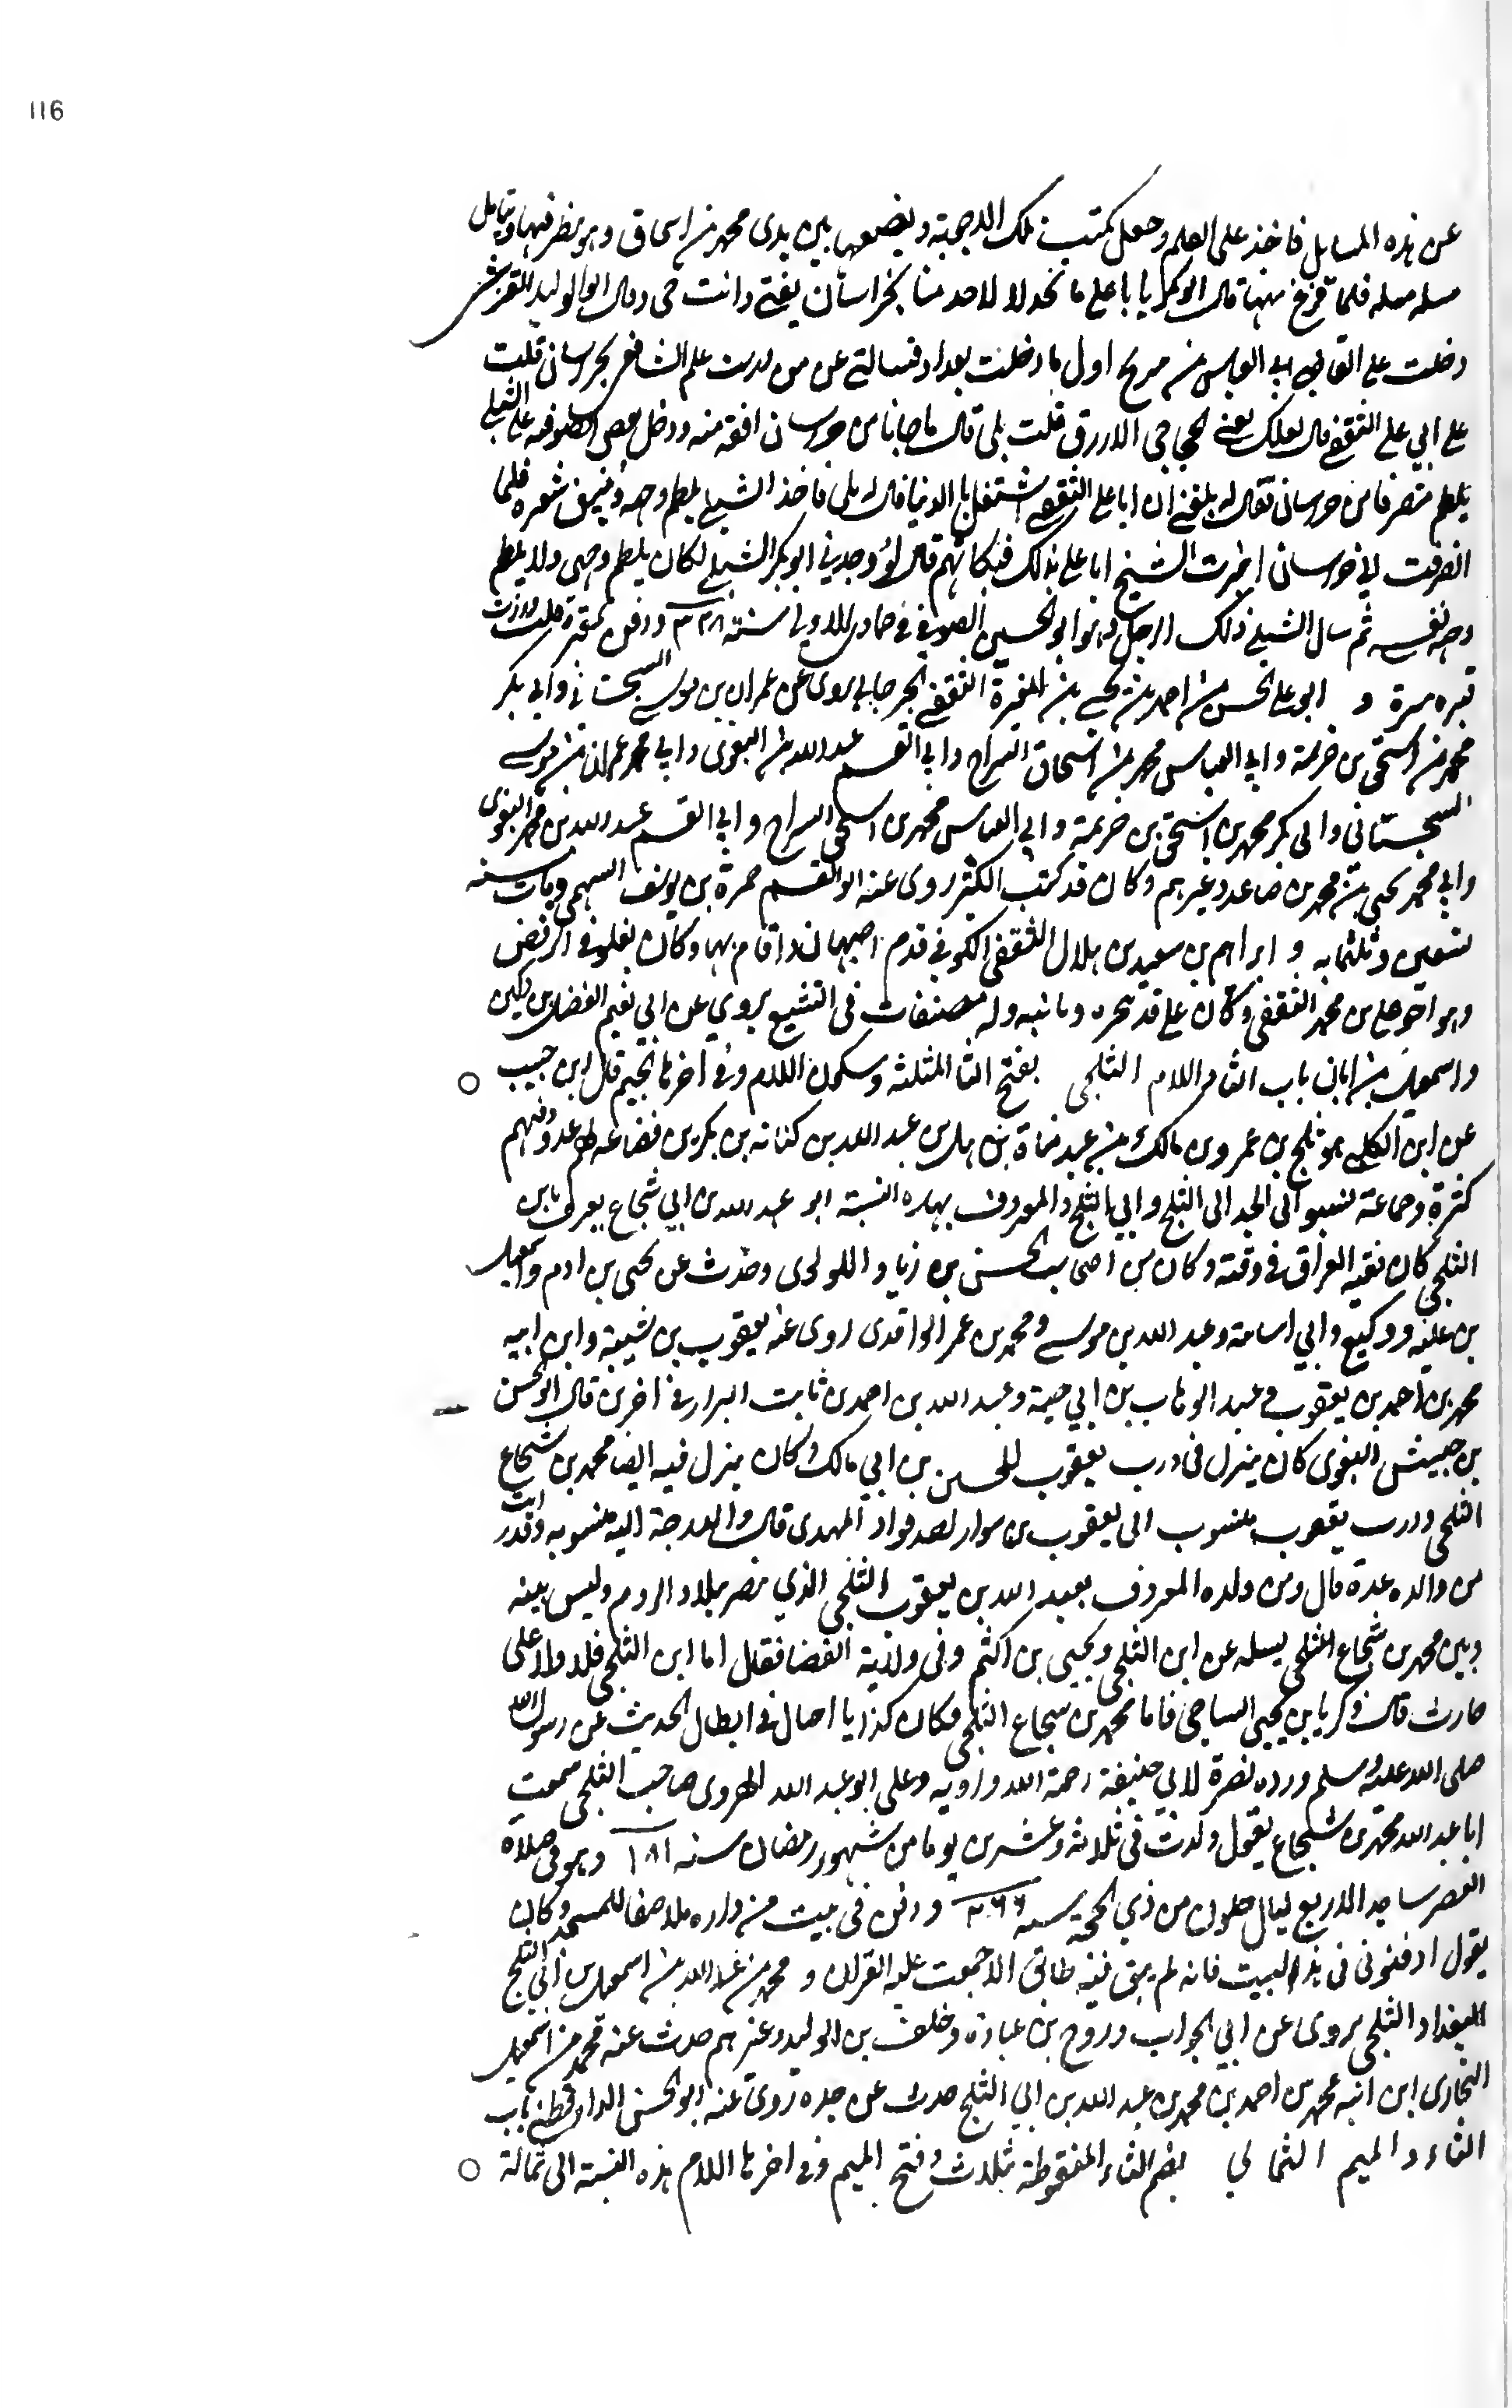 116
عن هذه المسايل فاخذ على القلم وجعل يكتب تلك الاجوبة ويضعها بين يدى محمد بن اسحاق وهو ينظر فيها ويتامل
مسله مسله فلما فرغ منها قال ابو بكر يا با على ما نحد لا لاحد منا بخراسان يفتي وانت حى وقال ابو الوليد القرشى
دخلت على القاضى ابى العباس بن سريج اول ما دخلت بغداد فسالنى عن من درست علم الشافعى بخراسان قلت
على ابي على الثقفى قال لعلك تعنى الحجاجى الازرق قلت بلى قال ما جانا من خراسان افقه منه ودخل بعض الصوفيه على الشبلى
يلطم منصرفا من خراسان فقال له بلغنى ان ابا على الثقفى اشتغل بالدنيا قال بلى فاخذ الشبلى يلطم وجهه وينتف شعره فلما
انصرفت الى خراسان اخبرت الشيخ ابا على بذلك فبكا ثم قال لو وجدنى ابو بكر الشبلى لكان يلطم وجهى ولا يلطم
وجه نفسه ثم سال الشبلى ذلك الرجل وهو ابو الحسين الصوفى فى جمادى الاولى سنة ٣٢٨ ودفن بمقبرة قلت وزرت
قبره مرة و ابو على الحسن بن احمد بن يحيى بن المغيرة الثقفى الجرجانى يروى عن عمران بن موسى السجستانى وابى بكر
محمد بن اسحق بن خزيمة وابى العباس محمد بن اسحاق السراج وابى القسم عبد الله بن البغوى وابى محمد عمران بن موسى
السجستانى وابى بكر محمد بن اسحق بن خزيمة وابى العباس محمد بن اسحق السراج وابى القسم عبد الله بن محمد البغوى
وابى محمد يحيى بن محمد بن صاعد وغيرهم وكان قد كتب الكثير روى عنه ابو القسم حمزة بن يوسف السهمى ومات سنه
تسعين وثلثمايه و ابراهيم بن سعيد بن هلال الثقفى الكوفى قدم اصبهان واقام بها وكان يغلو فى الرفض
وهو اخو على بن محمد الثقفى وكان على قد هجره وباينه وله مصنفات فى التشيع يروي عن ابي نعيم الفضل بن دكين
واسمعيل بن ابان باب الثا واللام الثلجى بفتح الثا المثلثة وسكون اللام وفى آخرها الجيم قال ابن حبيب
عن ابن الكلبى هو ثلج بن عمرو بن مالك بن عبد مناة بن هبل بن عبد الله بن كنانه بن بكر بن قضاعه لهم عدد وفيهم
كثرة وجماعة نسبوا الى الجد الى الثلج وابي الثلج والمعروف بهذه النسبة ابو عبد الله بن ابي شجاع يعرف بابن
الثلجى كان فقيه العراق فى وقته وكان من اصحاب الحسن بن زياد اللولوى وحدث عن يحيى بن ادم واسمعيل
بن علية ووكيع وابي اسامة وعبد الله بن موسى ومحمد بن عمر الواقدى روى عنه يعقوب بن شيبة وابن ابنه
محمد بن احمد بن يعقوب وعبد الوهاب بن ابي حية وعبد الله بن احمد بن ثابت البزار فى اخرين قال ابو الحسن
بن حبيش البغوى كان ينزل فى درب يعقوب للحسن بن ابي مالك وكان ينزل فيه ايضا محمد بن شجاع
الثلجى ودرب يعقوب منسوب الى يعقوب بن سوار احد قواد المهدى قال والعرصة اليه منسوبه وقد رايت
من والده عدة قال ومن ولده المعروف بعبد الله بن يعقوب الثلجى الذي تنصر ببلاد الروم وليس بينه
وبين محمد بن شجاع الثلجى يسله عن ابن الثلجى ويحيى بن اكثم وفى ولاية القضا فقال اما ابن الثلجى فلا ولا على
حارث قال زكريا بن يحيى الساجى فاما محمد بن شجاع الثلجى فكان كذابا احتال فى ابطال الحديث عن رسول الله
صلى الله عليه وسلم ورده نصرة لابي حنيفة رحمة الله ورايه وعلى ابو عبد الله الهروى صاحب الثلجى سمعت
ابا عبد الله محمد بن شجاع يقول ولدت فى ثلاثة وعشرين يوما من شهور رمضان سنه ١٨١ وهو فى صلاة
العصر ساجدا لاربع ليال خلون من ذي الحجة سنه ٢٦٦ ودفن فى بيت من داره ملاصقا للمسجد وكان
يقول ادفنونى فى هذا البيت فانه لم يبق فيه طابق الا ختمت عليه القران و محمد بن عبد الله بن اسمعيل بن ابي الثلج
البغداد الثلجى يروى عن ابي الجواب وروح بن عبادة وخلف بن الوليد وغيرهم حدث عنه محمد بن اسمعيل
البخارى ابن ابنه محمد بن احمد بن محمد بن عبد الله بن ابي الثلج حدث عن جده روى عنه ابو الحسن الدارقطنى باب
الثاء والميم الثمالي بضم الثاء المنقوطة بثلاث وفتح الميم وفى اخرها اللام هذه النسبة الى ثمالة